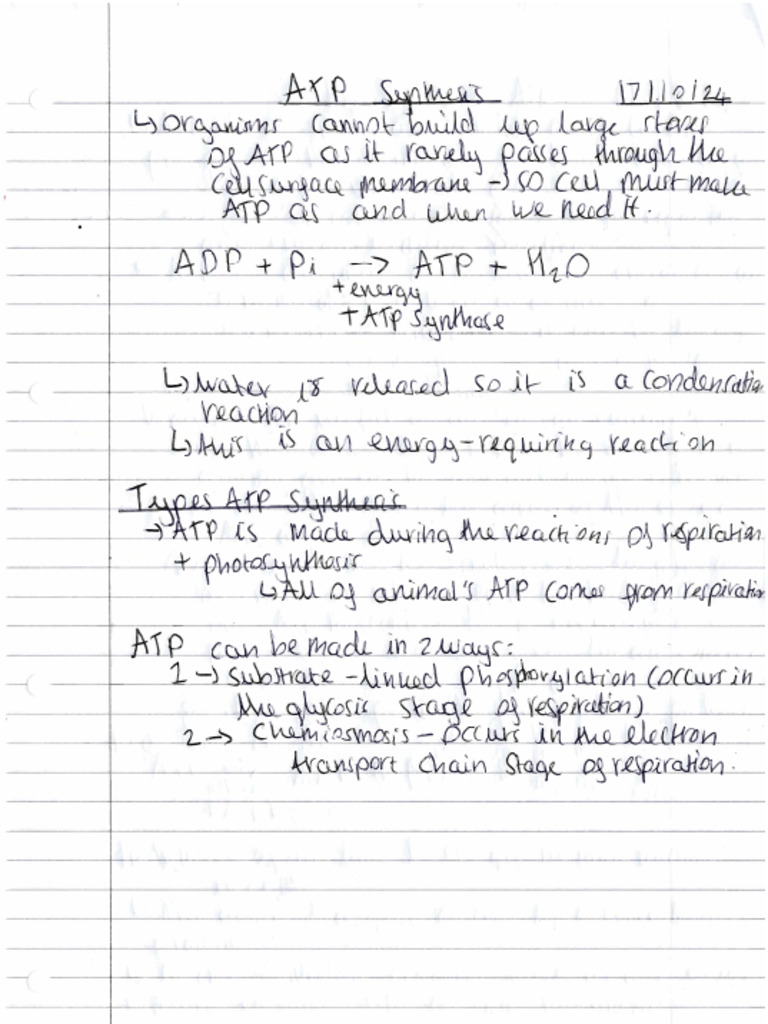 ATP Synthesis 17/10/24
↳ Organisms cannot build up large stores
of ATP as it rarely passes through the
cell surface membrane → so cell must make
ATP as and when we need it.
ADP + Pi → ATP + H₂O
+ energy
+ ATP Synthase
↳ water is released so it is a condensation
reaction
↳ this is an energy-requiring reaction
Types ATP Synthesis
→ ATP is made during the reactions of respiration
+ photosynthesis
↳ All of animal's ATP comes from respiration
ATP can be made in 2 ways:
1 → Substrate-linked phosphorylation (occurs in
the glycosis stage of respiration)
2 → Chemiosmosis - occurs in the electron
transport chain stage of respiration.